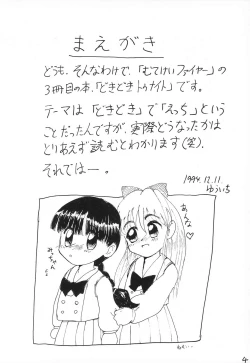 まえがき
どうも、そんなわけで、「むてけいファイヤー」の
3冊目の本、「どきどきトゥナイト」です。
テーマは「どきどき」で「えっち」という
ことだった人ですが、実際どうなったかは
とりあえず読むとわかります(笑)。
それでは―。
1994.12.11.
ゆういち
あんな♡
みーちゃん
4